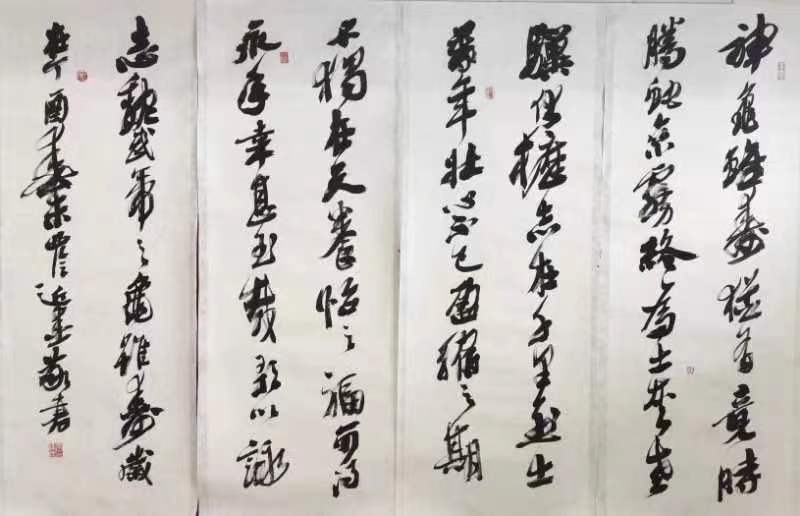 神龜雖壽猶有竟時
騰蛇乘霧終為土灰老
驥伏櫪志在千里烈士
暮年壯心不已盈縮之期
不獨在天養怡之福可得
永年幸甚至哉歌以詠
志魏武帝之龜雖壽歲
在丁酉春書